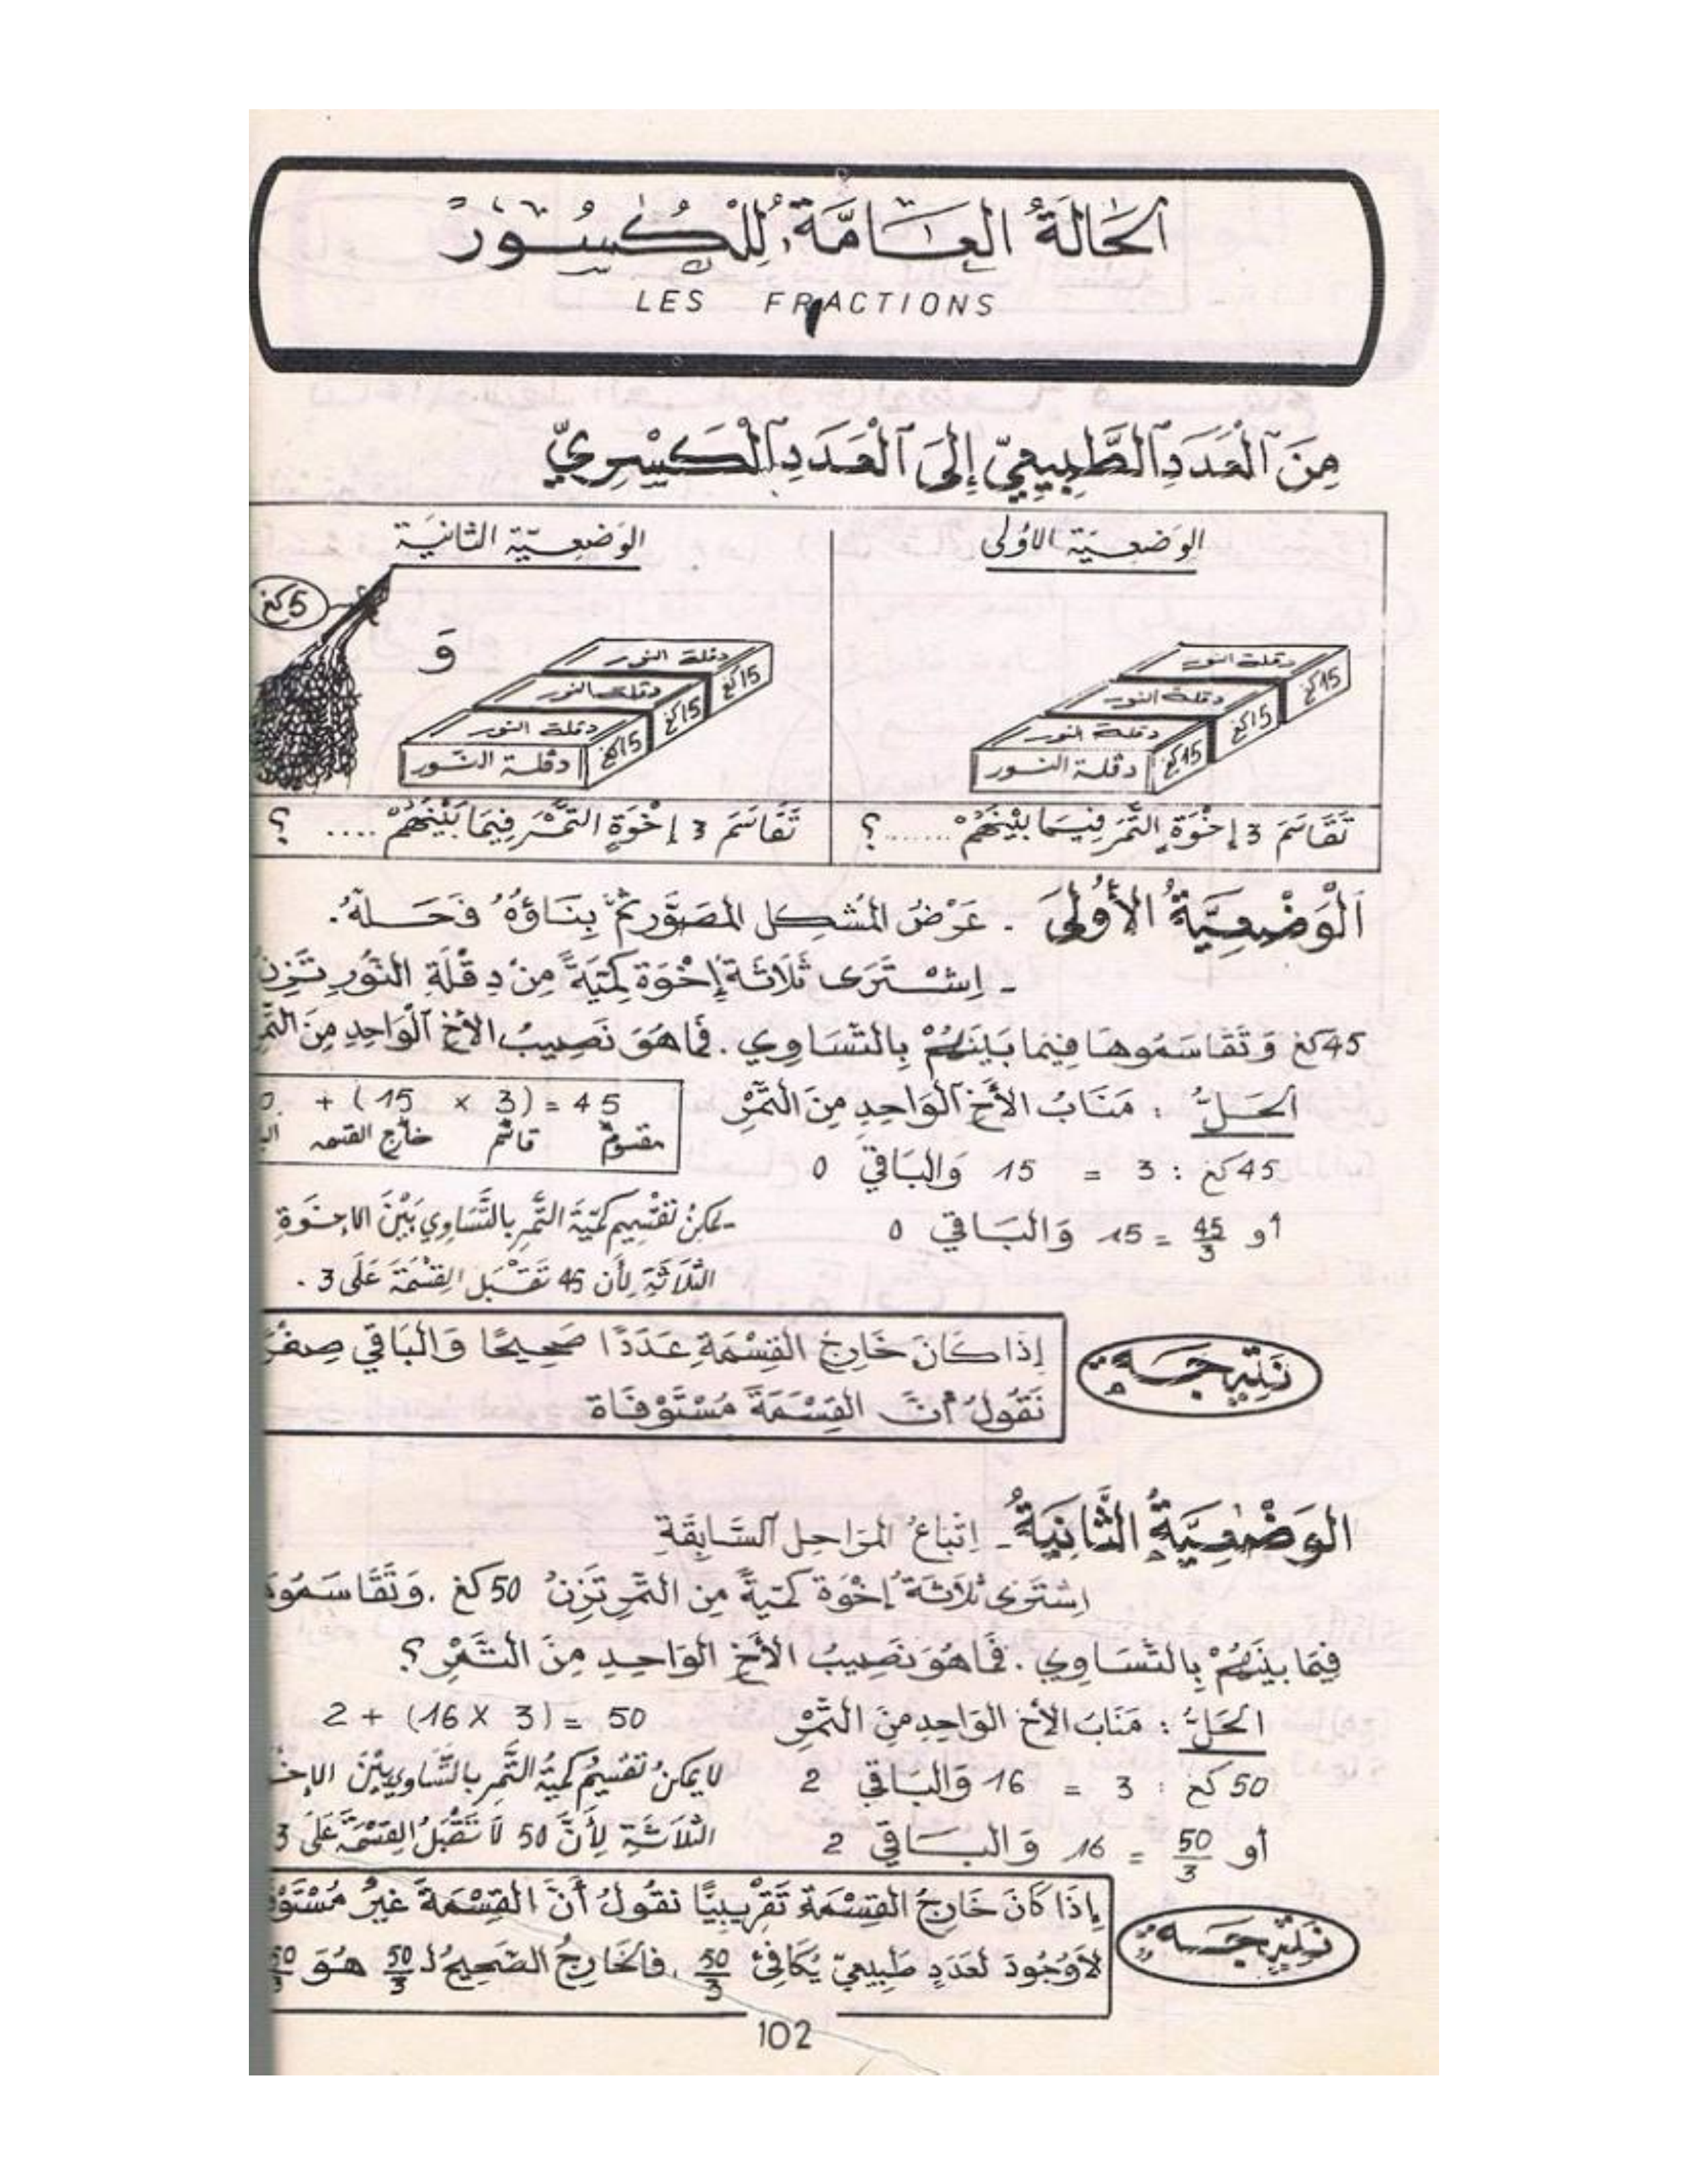 الحَالَةُ العَامَّةُ لِلْكُسُورْ
LES FRACTIONS
مِنَ الْعَدَدِ الطَّبِيعِيّ إِلَى الْعَدَدِ الْكَسْرِيّ
الوَضعِيّة الأولى
الوَضعِيّة الثانيَة
5كغ
وَ
دقلة النور
15كغ
دقلة النور
15كغ
دقلة النور
15كغ
دقلة النور
دقلة النور
15كغ
دقلة النور
15كغ
دقلة النور
15كغ
دقلة النور
تَقَاسَمَ 3 إخْوَةٍ التَّمْرَ فِيمَا بَيْنَهُمْ ....... ؟
تَقَاسَمَ 3 إخْوَةٍ التَّمْرَ فِيمَا بَيْنَهُمْ .... ؟
اَلْوَضْعِيَّةُ الأُولَى . عَرْضُ المُشكِل المصَوَّر ثمَّ بِنَاؤُهُ فَحَلهُ.
- اِشْتَرَى ثَلَاثَة إِخْوَة كَمّيَةً مِنْ دِقْلَةِ النُّور تَزِنُ
45كغ وَتَقَاسَمُوهَا فِيمَا بَيْنَهُمْ بِالتّسَاوِي . فَمَا هُوَ نَصِيبُ الأخِ الْوَاحِدِ مِنَ
الحَلُّ : مَنَابُ الأَخِ الوَاحِدِ مِنَ التَّمْرِ
+ ( 15 × 3) = 45
مقسوم قاسم خارج القسمه
45كغ : 3 = 15 وَالبَاقي 0
أو 45/3 = 15 وَالبَاقي 0
- يمكنُ تَقْسِيم كمّيَة التَّمر بالتَّسَاوِي بَيْنَ الإخْوَةِ
الثَّلَاثَة لِأَن 45 تَقْبَل القِسْمَةَ عَلَى 3 .
نَتِيجَة
إِذَا كَانَ خَارِجُ القِسْمَةِ عَدَدًا صَحِيحًا وَالبَاقي
نَقُولُ أنَّ القِسْمَةَ مُسْتَوْفَاة
الوَضْعِيَّةُ الثَّانِيَةُ - اِتّبَاعُ المرَاحِل السَّابِقَةِ
اِشتَرَى ثَلَاثَة إخْوَة كَمّيَةً مِن التَّمْرِ تَزِنُ 50كغ . وَتَقَاسَمُوهَا
فِيمَا بينَهُمْ بِالتّسَاوِي . فَمَا هُوَ نَصِيبُ الأَخِ الوَاحِدِ مِنَ التَّمْرِ ؟
الحَلُّ : مَنَابُ الأخِ الوَاحِدِ مِنَ التَّمْرِ
2 + (16 × 3) = 50
50 كغ : 3 = 16 وَالبَاقي 2
أو 50/3 = 16 وَالبَاقي 2
لا يمكنُ تَقْسِيمُ كَمّيّة التَّمر بالتَّسَاوِي بَيْنَ
الثَّلَاثَةِ لِأَنَّ 50 لَا تَقْبَلُ القِسْمَةَ عَلَى 3
نَتِيجَة
إِذَا كَانَ خَارِجُ القِسْمَة تَقْرِيبِيًّا نَقُولُ أَنَّ القِسْمَةَ غَيْرُ
لَا وُجُودَ لعَدَدٍ طَبِيعِيّ يُكَافِئُ 50/3 . فالخَارِجُ الصَّحِيحُ لـ 50/3 هُوَ
102